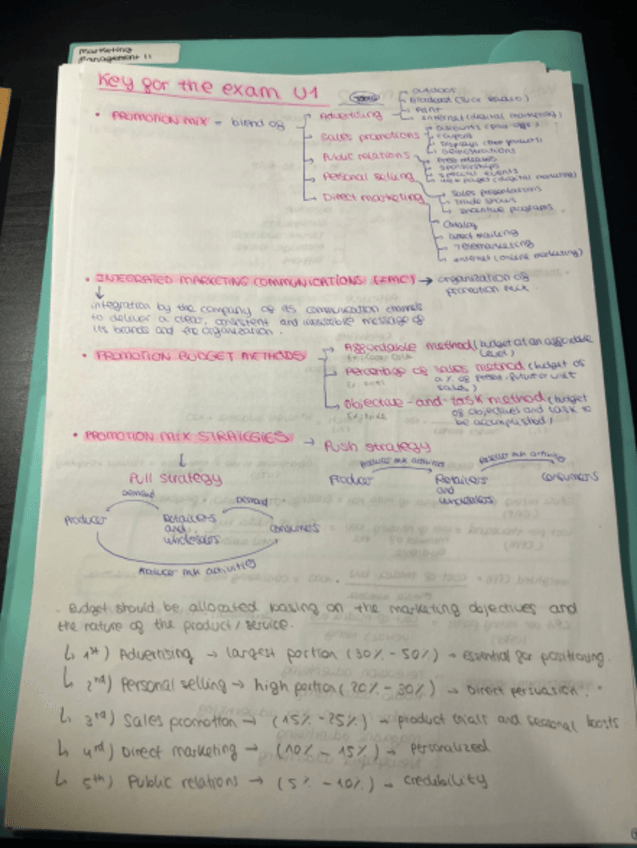 Marketing
Management II
Key for the exam U1
• PROMOTION MIX = blend of
Advertising
outdoor
Broadcast
Print
internet (digital marketing)
Sales promotions
discounts
coupons
Displays
demonstrations
Public relations
Press releases
sponsorships
special events
web pages (digital marketing)
Personal selling
Sales presentations
Trade shows
incentive programs
Direct marketing
Catalog
Direct mailing
Telemarketing
internet (online marketing)
• INTEGRATED MARKETING COMMUNICATIONS (IMC) → organization of
promotion mix
↓
integration by the company of its communication channels
to deliver a clear, consistent and message of
its brands and the organization.
• PROMOTION BUDGET METHODS
Affordable method (budget at an affordable
level)
Percentage of sales method (budget of
a % of or unit
sales)
Objective-and-task method (budget
of objectives and task to
be accomplished)
• PROMOTION MIX STRATEGIES → Push strategy
↓
Producer mk activities
Producer mk activities
Producer
Retailers
and
wholesalers
consumers
Pull strategy
Demand
Demand
Producer
Retailers
and
wholesalers
consumers
Producer mk activities
. Budget should be allocated basing on the marketing objectives and
the nature of the product/service.
↳ 1st) Advertising → largest portion (30% - 50%) → essential for positioning.
↳ 2nd) Personal selling → high portion (20% - 30%) → Direct persuasion.
↳ 3rd) Sales promotion → (15% - 25%) → product trials and seasonal boosts
↳ 4rd) Direct marketing → (10% - 15%) → Personalized
↳ 5th) Public relations → (5% - 10%) → credibility